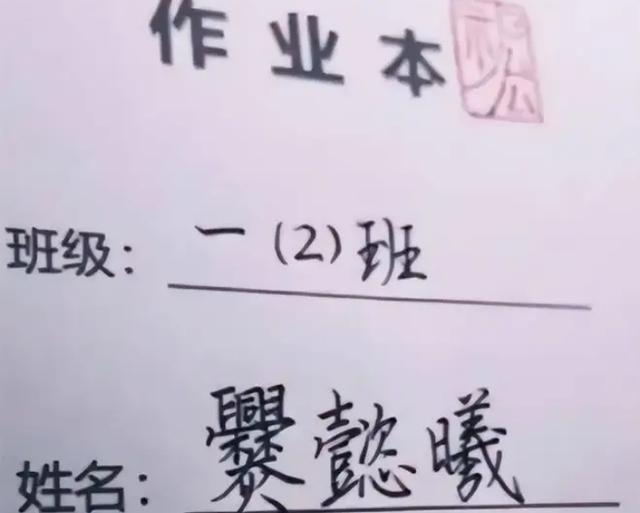 作业本
班级：一(2)班
姓名：爨懿曦